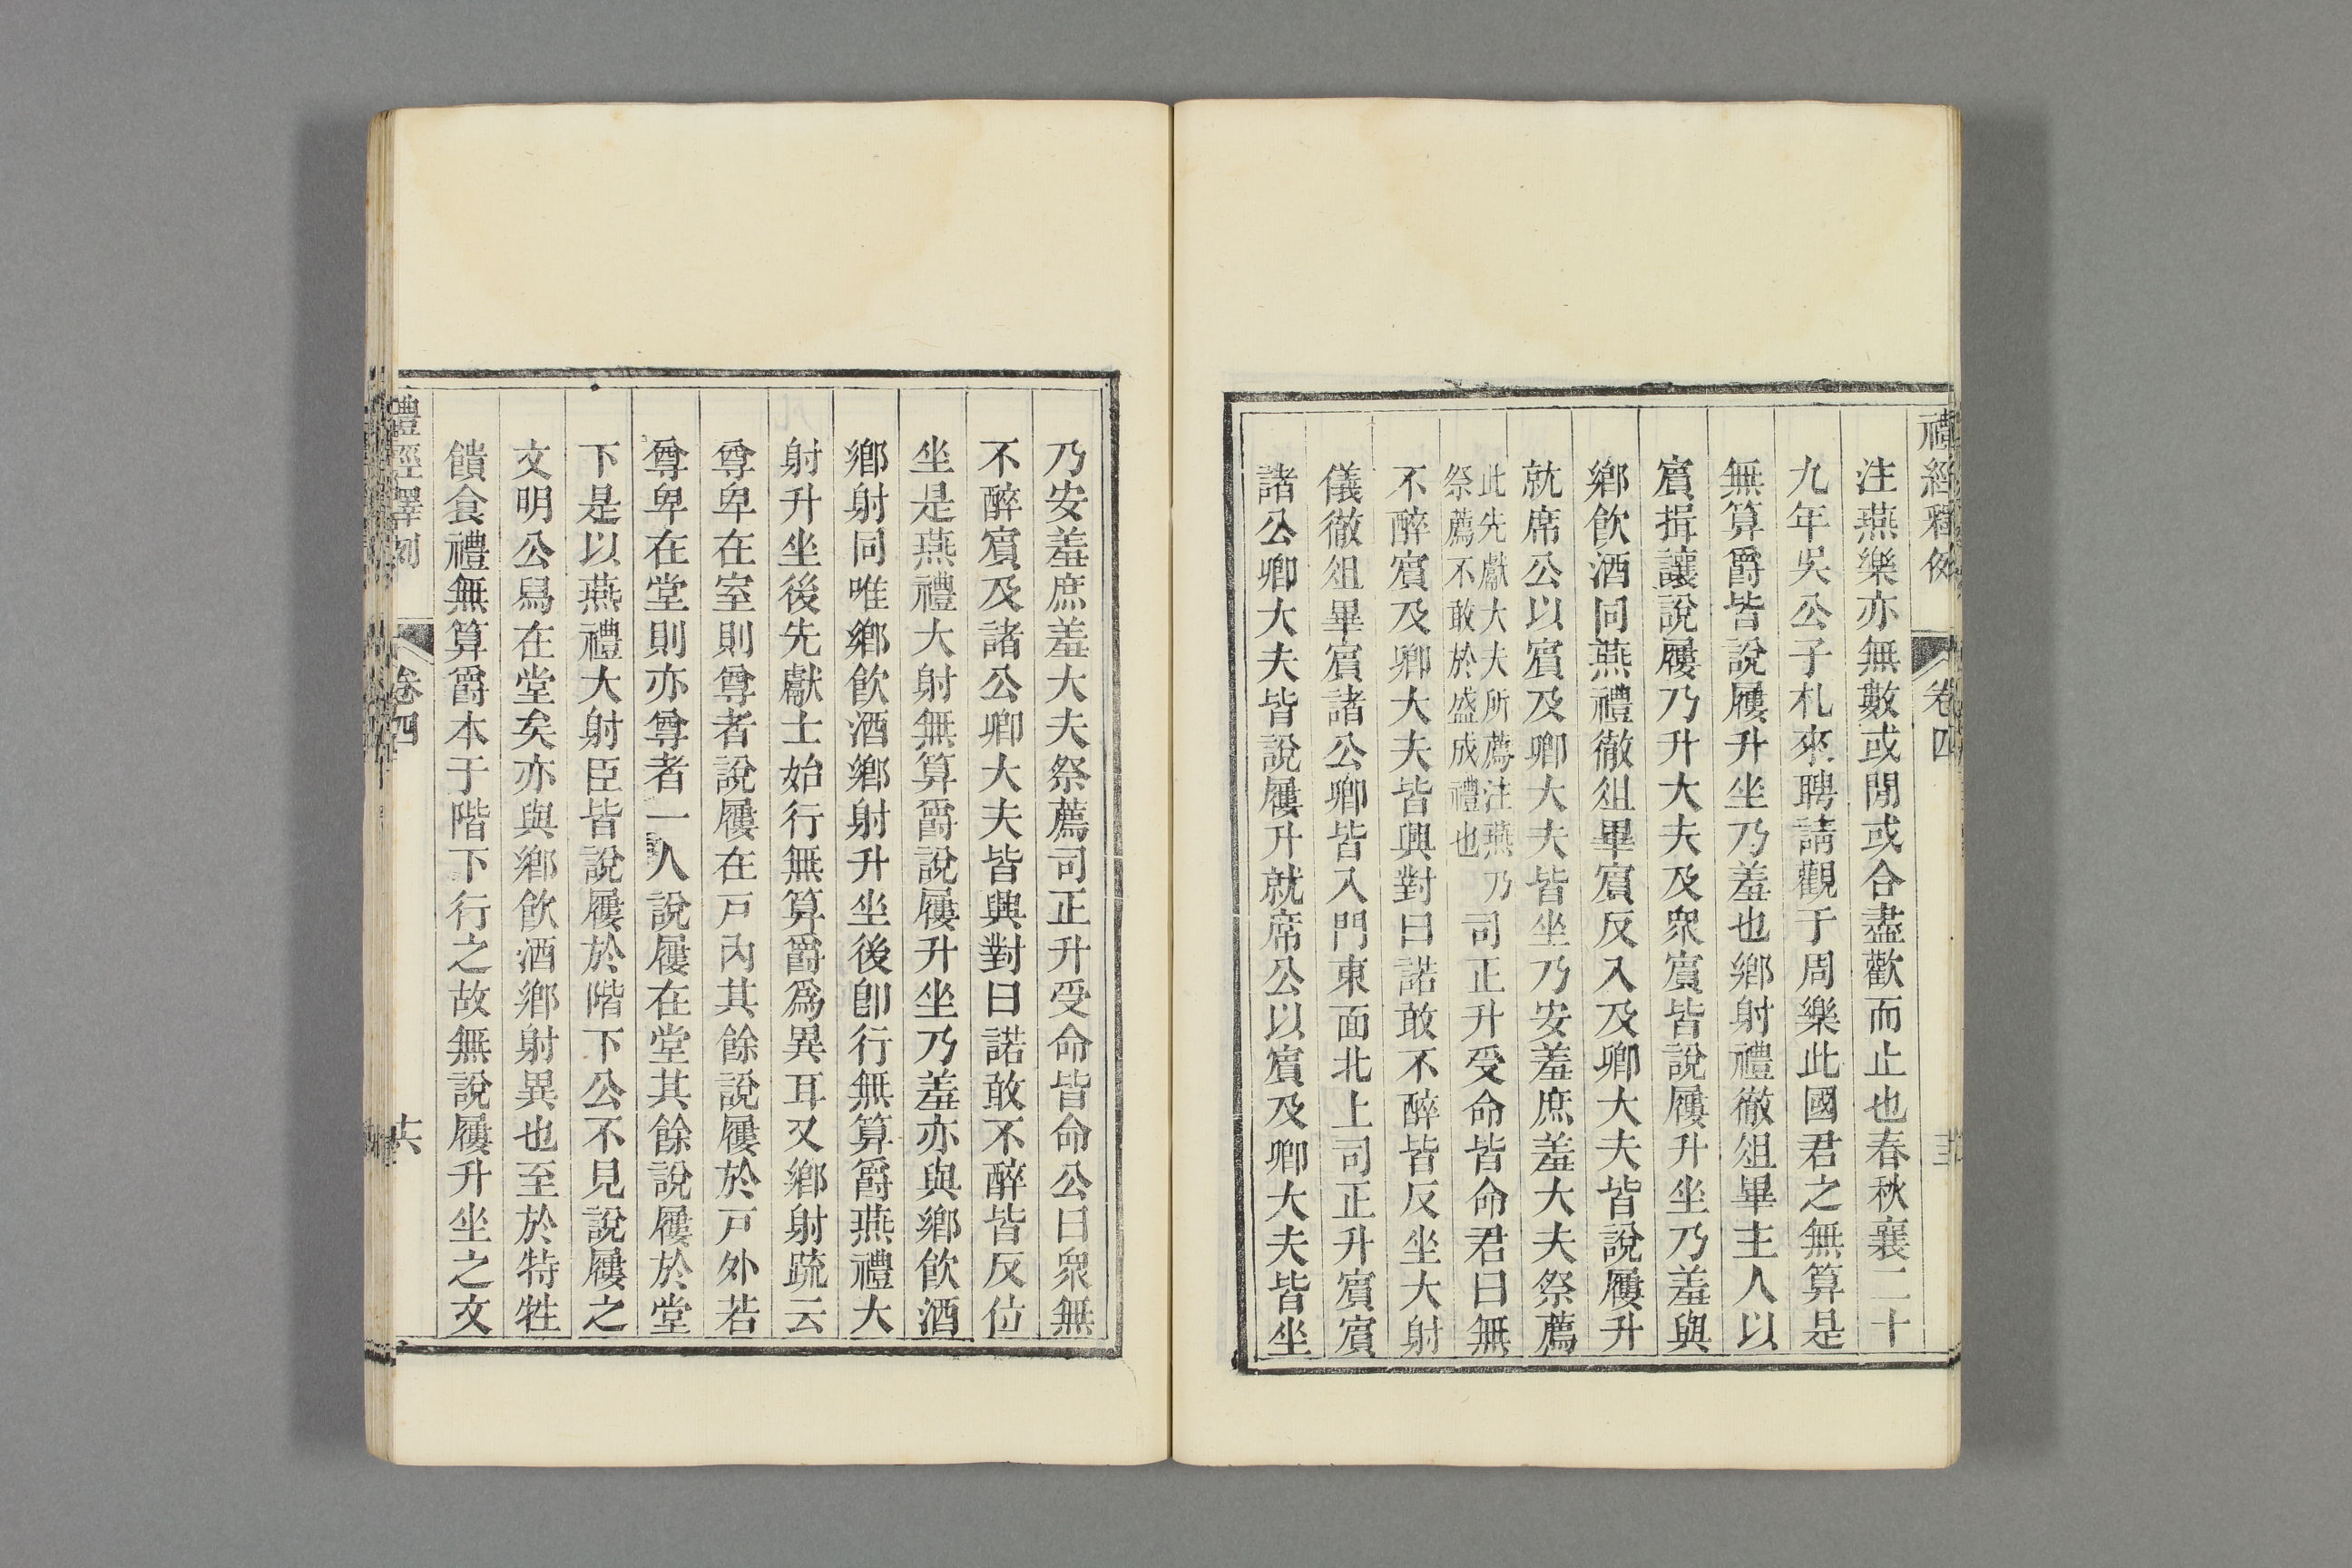 禮經釋例 卷四
注燕樂亦無數或閒或合盡歡而止也春秋襄二十
九年吳公子札來聘請觀于周樂此國君之無算是
無算爵皆說屨升坐乃羞也鄉射禮徹俎畢主人以
賓揖讓說屨乃升大夫及衆賓皆說屨升坐乃羞與
鄉飲酒同燕禮徹俎畢賓反入及卿大夫皆說屨升
就席公以賓及卿大夫皆坐乃安羞庶羞大夫祭薦
此先獻大夫所薦注燕乃
祭薦不敢於盛成禮也
司正升受命皆命君曰無
不醉賓及卿大夫皆興對曰諾敢不醉皆反坐大射
儀徹俎畢賓諸公卿皆入門東面北上司正升賓賓
諸公卿大夫皆說屨升就席公以賓及卿大夫皆坐
乃安羞庶羞大夫祭薦司正升受命皆命公曰衆無
不醉賓及諸公卿大夫皆興對曰諾敢不醉皆反位
坐是燕禮大射無算爵說屨升坐乃羞亦與鄉飲酒
鄉射同唯鄉飲酒鄉射升坐後卽行無算爵燕禮大
射升坐後先獻士始行無算爵爲異耳又鄉射疏云
尊卑在室則尊者說屨在戸內其餘說屨於戸外若
尊卑在堂則亦尊者一人說屨在堂其餘說屨於堂
下是以燕禮大射臣皆說屨於階下公不見說屨之
文明公舄在堂矣亦與鄉飲酒鄉射異也至於特牲
饋食禮無算爵本于階下行之故無說屨升坐之文
禮經釋例 卷四 十六